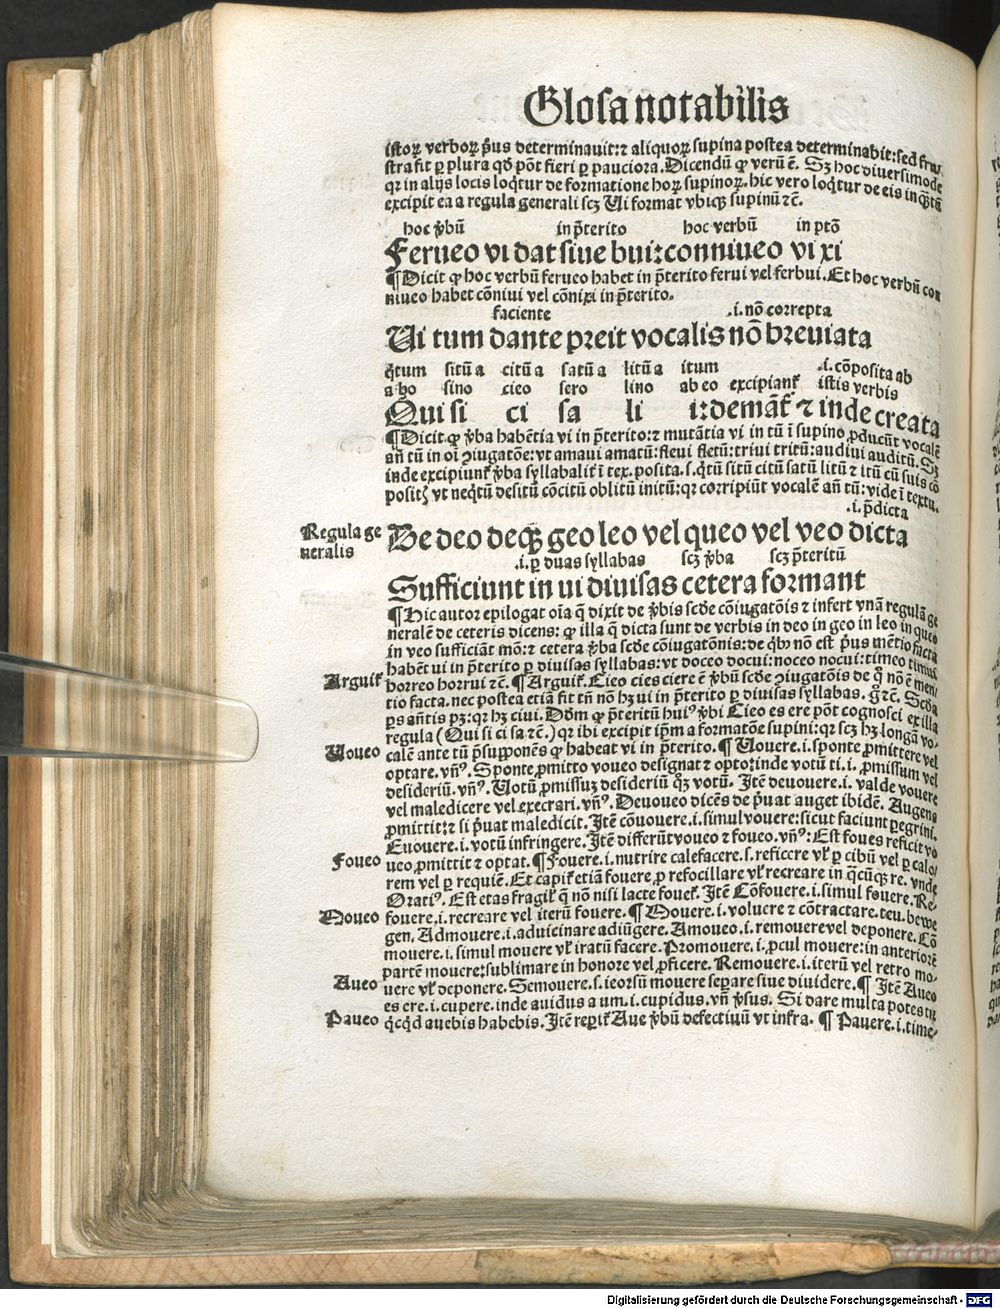 Glosa notabilis
istoꝝ verboꝝ p̃us determinauit:⁊ aliquoꝝ supina postea determinabit:sed fru
stra fit ꝑ plura qď põt fieri ꝑ pauciora. Dicendũ ꝙ verũ ẽ. Sꝫ hoc diuersimode
qꝛ in alijs locis loq̃tur de formatione hoꝝ supinoꝝ. hic vero loq̃tur de eis in q̃tũ
excipit ea a regula generali scꝫ Ui format vbiqꝫ supinũ ⁊c̃.
hoc ṽbũ in p̃terito hoc verbũ in ptõ
Ferueo vi dat siue bui:conniueo vi xi
¶ Dicit ꝙ hoc verbũ ferueo habet in p̃terito ferui vel ferbui. Et hoc verbũ con
niueo habet cõniui vel cõnixi in p̃terito.
faciente .i. nõ correpta
Ui tum dante preit vocalis nõ breuiata
q̃tum sitũ a citũ a satũ a litũ a itum .i. cõposita ab
a ho sino cieo sero lino ab eo excipianť istis verbis
Qui si ci sa li i:demãť ⁊ inde creata
¶ Dicit ꝙ ṽba habẽtia vi in p̃terito:⁊ mutãtia vi in tũ ĩ supino ꝓducũt vocalẽ
añ tũ in oĩ ɔiugatõe:vt amaui amatũ:fleui fletũ:triui tritũ:audiui auditũ. Sꝫ
inde excipiunť ṽba syllabaliť ĩ tex. posita. s. q̃tũ sitũ citũ satũ litũ ⁊ itũ cũ suis cõ
positꝭ vt neq̃tũ desitũ cõcitũ oblitũ initũ:qꝛ corripiũt vocalẽ añ tũ:vide ĩ textu.
.i. p̃dicta
Regula ge
neralis
Be deo deqꝫ geo leo vel queo vel veo dicta
.i. ꝑ duas syllabas scꝫ ṽba scꝫ p̃teritũ
Sufficiunt in ui diuisas cetera formant
¶ Hic autor epilogat oĩa q̃ dixit de ṽbis scďe cõiugatõis ⁊ infert vnã regulã ge
neralẽ de ceteris dicens: ꝙ illa q̃ dicta sunt de verbis in deo in geo in leo in queo
in veo sufficiãt mõ: ⁊ cetera ṽba scďe cõiugatõnis: de q̃bꝰ nõ est p̃us mẽtio facta
habẽt ui in p̃terito ꝑ diuisas syllabas: vt doceo docui:noceo nocui:timeo timui
Arguiť horreo horrui ⁊c̃. ¶ Arguiť. Cieo cies ciere ẽ ṽbũ scďe ɔiugatõis de q̃ nõ ẽ men
tio facta. nec postea etiã fit tñ nõ hꝫ ui in p̃terito ꝑ diuisas syllabas. g̃ ⁊c̃. Scďa
ps añtis pꝫ: qꝛ hꝫ ciui. Dõm ꝙ p̃teritũ huiꝰ ṽbi Cieo es ere põt cognosci ex illa
regula (Qui si ci sa ⁊c̃.) qꝛ ibi excipit ip̃m a formatõe supini: qꝛ scꝫ hꝫ longã vo-
Uoueo calẽ ante tũ p̃supponẽs ꝙ habeat vi in p̃terito. ¶ Uouere. i. sponte ꝓmittere vel
optare. vñꝰ. Sponte ꝓmitto voueo designat ⁊ opto: inde votũ ti. i. ꝓmissum vel
desideriũ. vñꝰ. Uotũ ꝓmissuꝫ desideriũ qꝫ votũ. Itẽ deuouere. i. valde vouere
vel maledicere vel execrari. vñꝰ. Deuoueo dicẽs de p̃uat auget ibidẽ. Augens
ꝓmittit: ⁊ si p̃uat maledicit. Itẽ cõuouere. i. simul vouere: sicut faciunt peregrini.
Euouere. i. votũ infringere. Itẽ differũt voueo ⁊ foueo. vñꝰ: Est foues reficit vo
Foueo ueo ꝓmittit ⁊ optat. ¶ Fouere. i. nutrire calefacere. s. reficere vľ ꝑ cibũ vel ꝑ calo
rem vel ꝑ requiẽ. Et capiť etiã fouere, ꝓ refocillare vľ recreare in q̃cũqꝫ re. vnde
Oratiꝰ. Est etas fragiľ q̃ nõ nisi lacte foueť. Itẽ Cõfouere. i. simul fouere. Re-
Moueo fouere. i. recreare vel iterũ fouere. ¶ Mouere. i. voluere ⁊ cõtractare. teu. bewe
gen. Admouere. i. aduicinare adiũgere. Amoueo. i. remouere vel deponere. Cõ
mouere. i. simul mouere vľ iratũ facere. Promouere. i. ꝓcul mouere: in anteriorẽ
partẽ mouere: sublimare in honore vel ꝓficere. Remouere. i. iterũ vel retro mo-
Aueo uere vľ deponere. Semouere. s. seorsũ mouere separe siue diuidere. ¶ Itẽ Aueo
es ere. i. cupere. inde auidus a um. i. cupidus. vñ ṽsus. Si dare multa potes tu
Paueo q̃cq̃d auebis habebis. Itẽ reꝑiť Aue ṽbũ defectiuũ vt infra. ¶ Pauere. i. time-
Digitalisierung gefördert durch die Deutsche Forschungsgemeinschaft - DFG